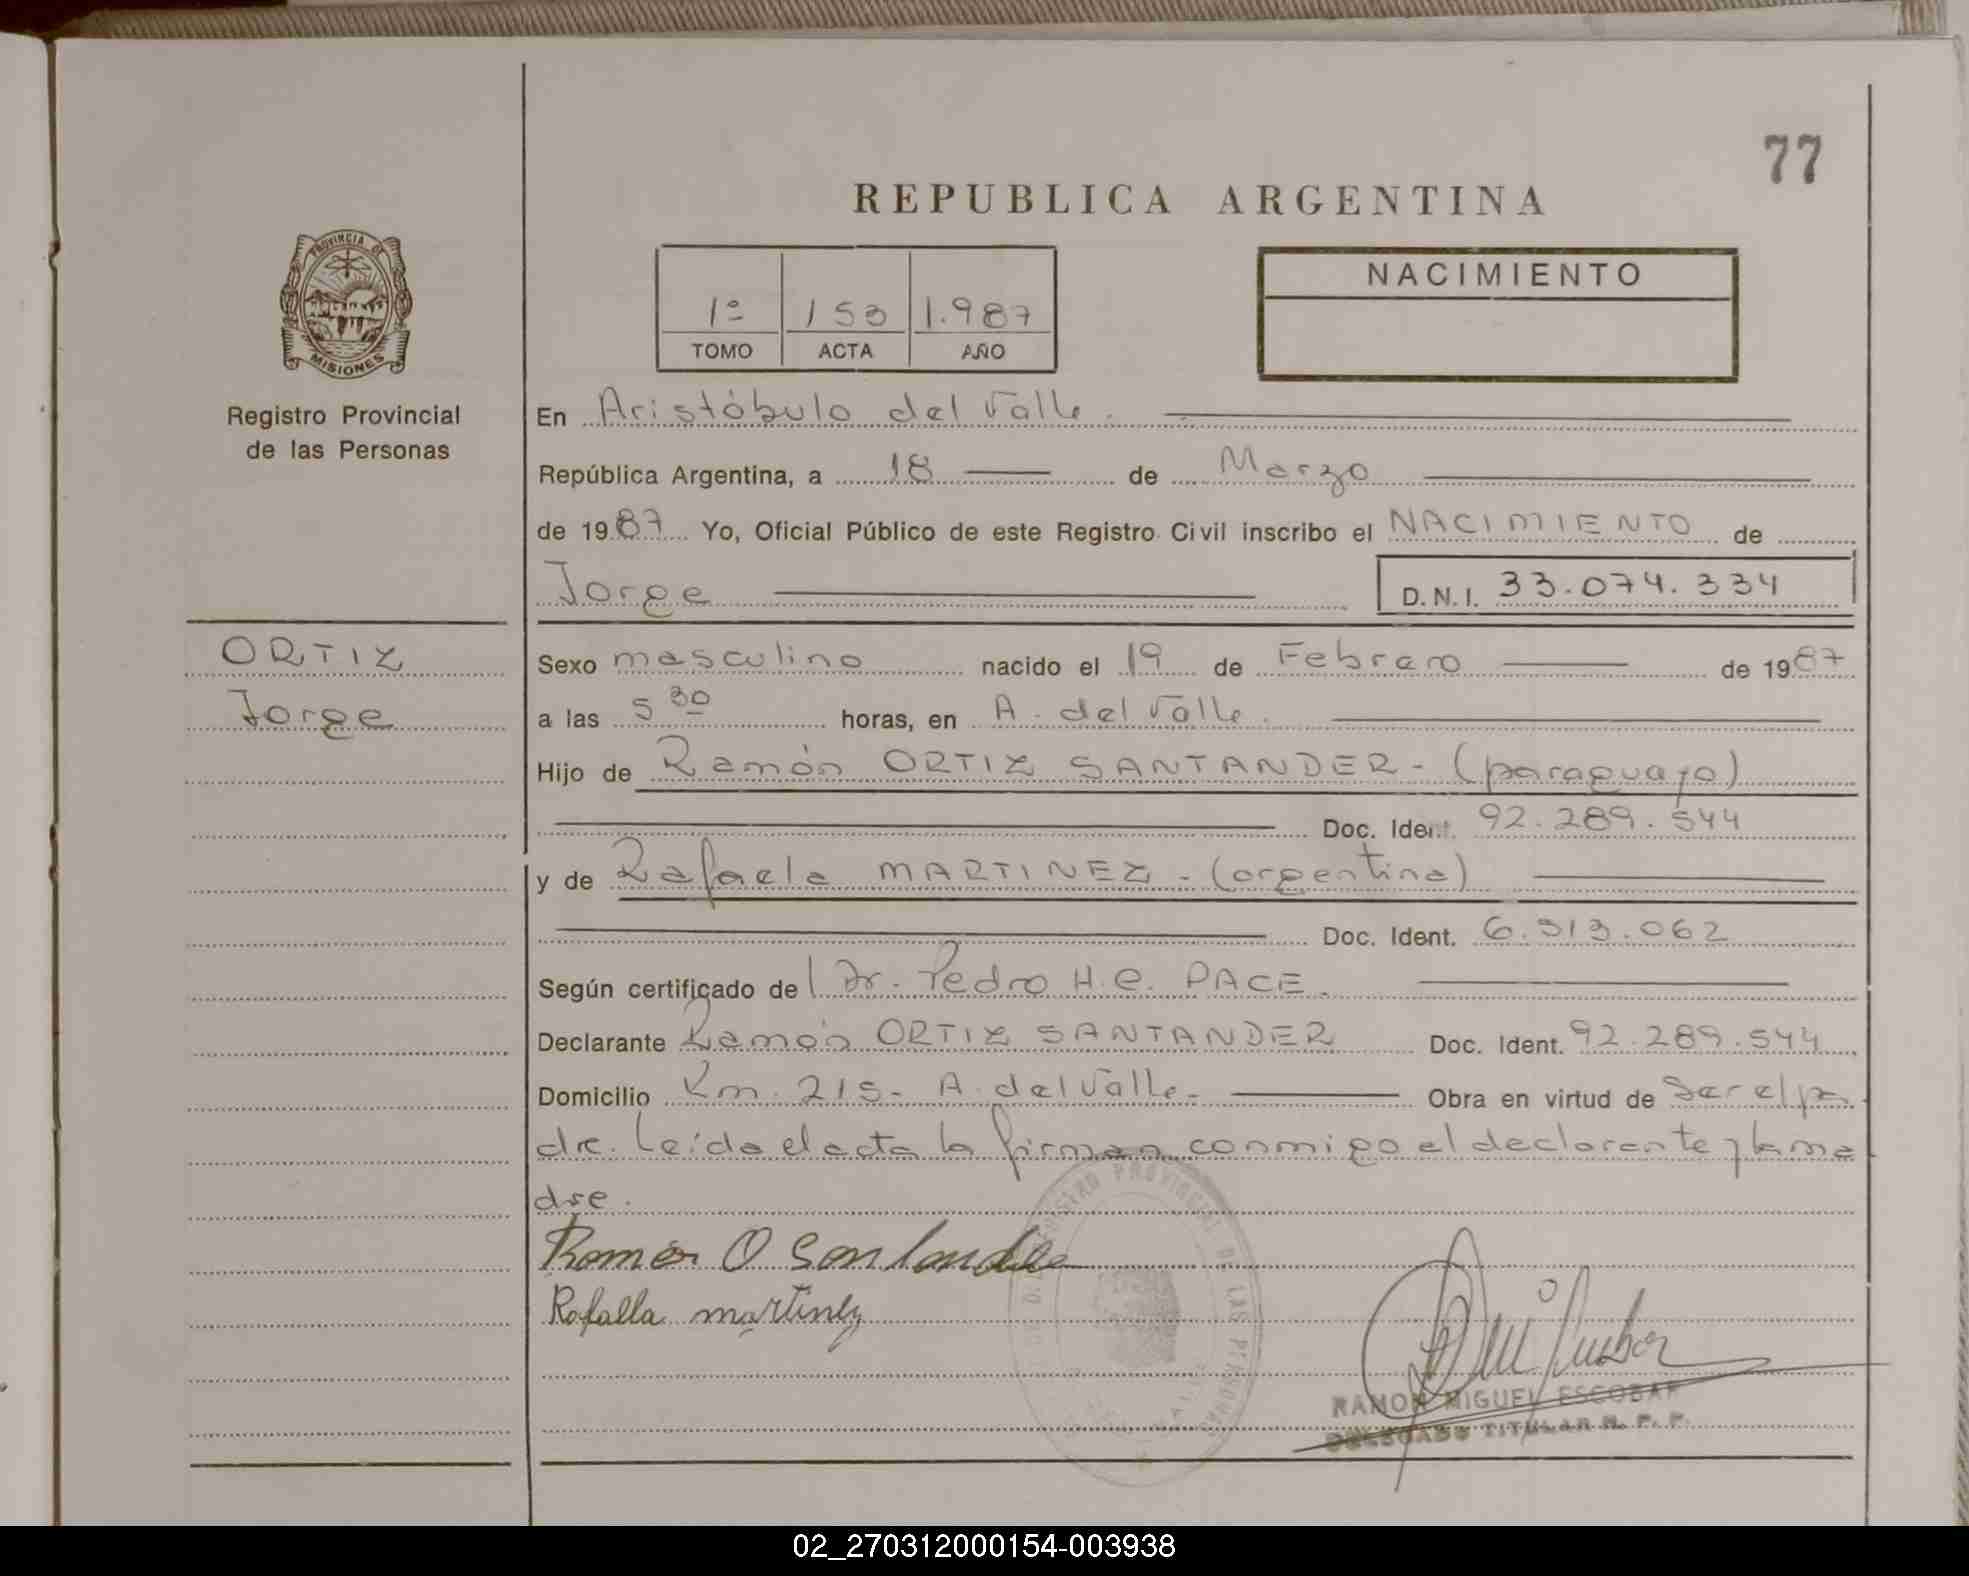 77
REPUBLICA ARGENTINA
PROVINCIA DE
MISIONES
Registro Provincial
de las Personas
1º 153 1.987
TOMO ACTA AÑO
NACIMIENTO
En Aristóbulo del Valle.
República Argentina, a 18 de Marzo
de 1987 Yo, Oficial Público de este Registro Civil inscribo el NACIMIENTO de
Jorge D.N.I. 33.074.334
ORTIZ
Jorge
Sexo masculino nacido el 19 de Febrero de 1987
a las 5 30 horas, en A. del Valle.
Hijo de Ramón ORTIZ SANTANDER - (paraguayo)
Doc. Ident. 92.289.544
y de Rafaela MARTINEZ - (argentina)
Doc. Ident. 6.313.062
Según certificado del Dr. Pedro H.C. PACE.
Declarante Ramón ORTIZ SANTANDER Doc. Ident. 92.289.544
Domicilio Km. 215- A. del Valle- Obra en virtud de ser el pa
dre. Leída el acta la firman conmigo el declarante y la ma
dre.
Ramón O Santander
Rafaela martinez
REGISTRO PROVINCIAL DE LAS PERSONAS
RAMON MIGUEL ESCOBAR
DELEGADO TITULAR R. P. P.
02_270312000154-003938